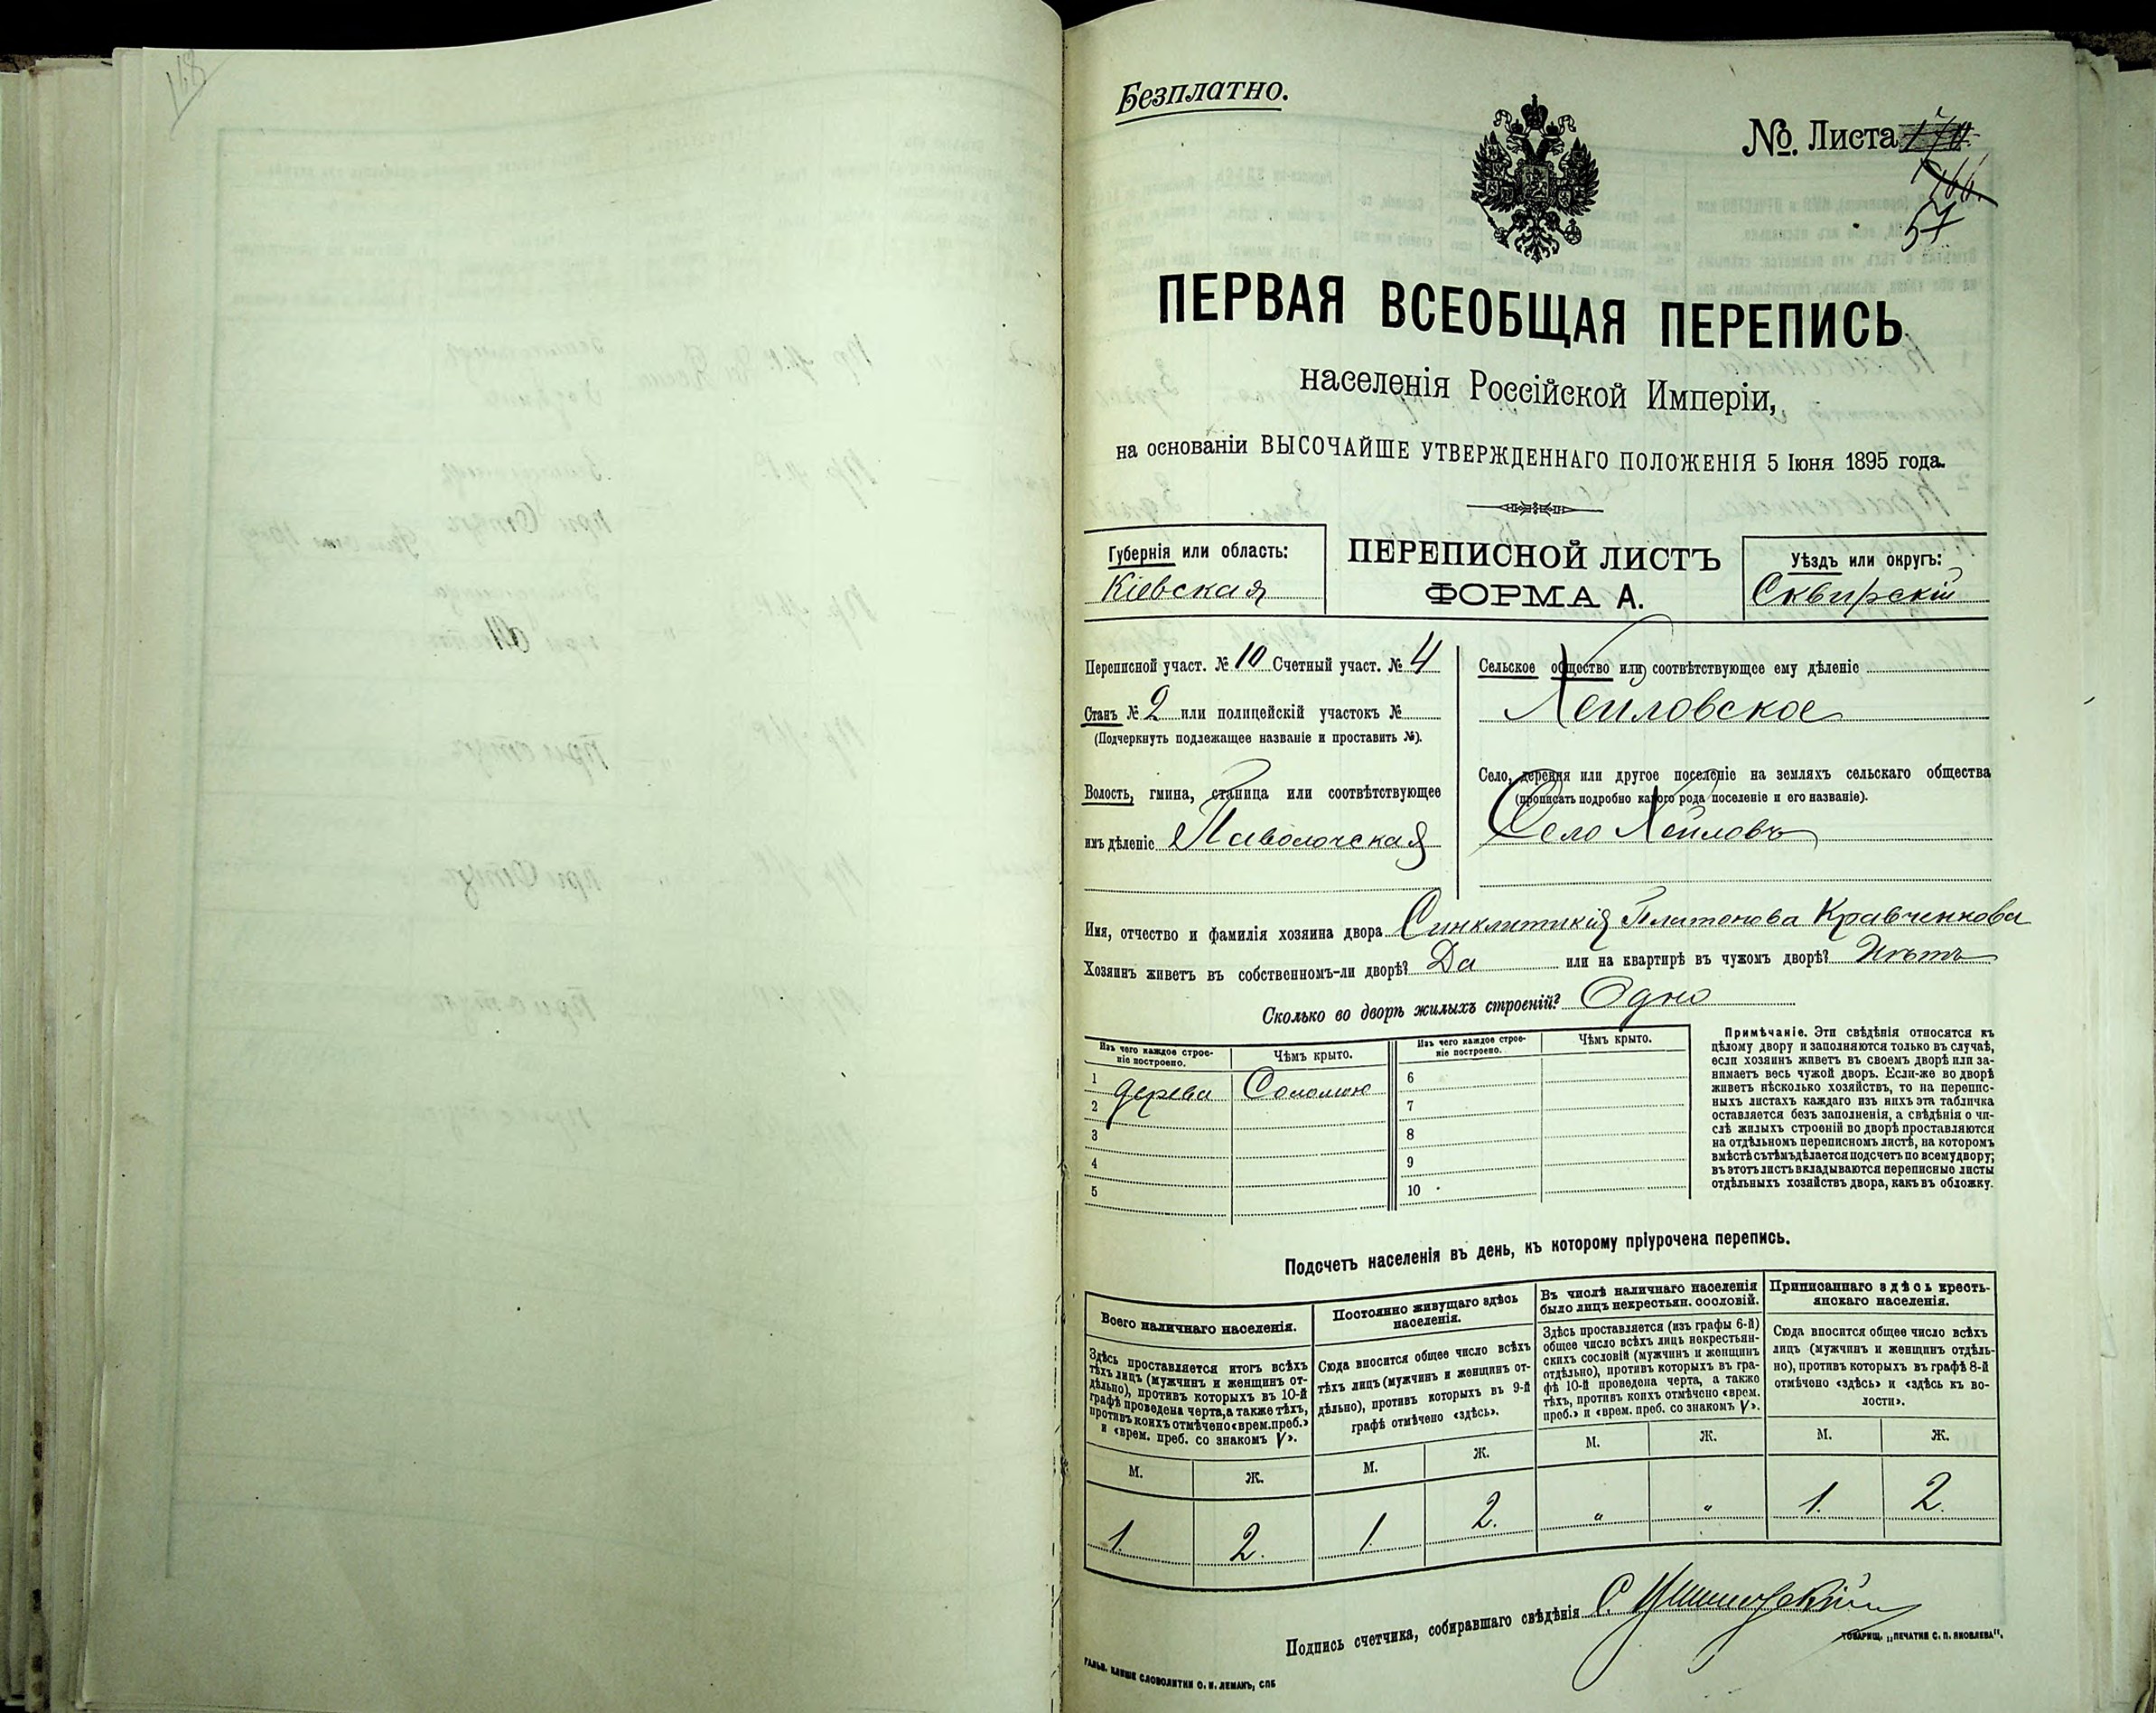 168
Безплатно.
№. Листа 170.
166.
57
ПЕРВАЯ ВСЕОБЩАЯ ПЕРЕПИСЬ
населенія Россійской Имперіи,
на основаніи ВЫСОЧАЙШЕ УТВЕРЖДЕННАГО ПОЛОЖЕНІЯ 5 Іюня 1895 года.
Губернія или область:
Кіевская
ПЕРЕПИСНОЙ ЛИСТЪ
ФОРМА А.
Уѣздъ или округъ:
Сквирскій
Переписной участ. № 10 Счетный участ. № 4
Станъ № 2 или полицейскій участокъ №
(Подчеркнуть подлежащее названіе и проставить №).
Волость, гмина, станица или соотвѣтствующее
имъ дѣленіе Паволочская
Сельское общество или соотвѣтствующее ему дѣленіе
Хейловское
Село, деревня или другое поселеніе на земляхъ сельскаго общества
(прописать подробно какого рода поселеніе и его названіе).
Село Хейловъ
Имя, отчество и фамилія хозяина двора Синклитикія Платонова Кравченкова
Хозяинъ живетъ въ собственномъ-ли дворѣ? Да или на квартирѣ въ чужомъ дворѣ? Нѣтъ
Сколько во дворѣ жилыхъ строеній? Одно
Изъ чего каждое строе-
ніе построено.
Чѣмъ крыто.
Изъ чего каждое строе-
ніе построено.
Чѣмъ крыто.
1 дерева Соломою
2
3
4
5
6
7
8
9
10
Примѣчаніе. Эти свѣдѣнія относятся къ
цѣлому двору и заполняются только въ случаѣ,
если хозяинъ живетъ въ своемъ дворѣ или за-
нимаетъ весь чужой дворъ. Если-же во дворѣ
живетъ нѣсколько хозяйствъ, то на перепис-
ныхъ листахъ каждаго изъ нихъ эта табличка
оставляется безъ заполненія, а свѣдѣнія о чи-
слѣ жилыхъ строеній во дворѣ проставляются
на отдѣльномъ переписномъ листѣ, на которомъ
вмѣстѣ съ тѣмъ дѣлается подсчетъ по всему двору;
въ этотъ листъ вкладываются переписные листы
отдѣльныхъ хозяйствъ двора, какъ въ обложку.
Подсчетъ населенія въ день, къ которому пріурочена перепись.
Всего наличнаго населенія.
Здѣсь проставляется итогъ всѣхъ
тѣхъ лицъ (мужчинъ и женщинъ от-
дѣльно), противъ которыхъ въ 10-й
графѣ проведена черта, а также тѣхъ,
противъ коихъ отмѣчено «врем. преб.»
и «врем. преб. со знакомъ V».
М. Ж.
1. 2.
Постоянно живущаго здѣсь
населенія.
Сюда вносится общее число всѣхъ
тѣхъ лицъ (мужчинъ и женщинъ от-
дѣльно), противъ которыхъ въ 9-й
графѣ отмѣчено «здѣсь».
М. Ж.
1. 2.
Въ числѣ наличнаго населенія
было лицъ некрестьян. сословій.
Здѣсь проставляется (изъ графы 6-й)
общее число всѣхъ лицъ некрестьян-
скихъ сословій (мужчинъ и женщинъ
отдѣльно), противъ которыхъ въ гра-
фѣ 10-й проведена черта, а также
тѣхъ, противъ коихъ отмѣчено «врем.
преб.» и «врем. преб. со знакомъ V».
М. Ж.
" "
Приписаннаго здѣсь кресть-
янскаго населенія.
Сюда вносится общее число всѣхъ
лицъ (мужчинъ и женщинъ отдѣль-
но), противъ которыхъ въ графѣ 8-й
отмѣчено «здѣсь» и «здѣсь къ во-
лости».
М. Ж.
1. 2.
Подпись счетчика, собиравшаго свѣдѣнія С.
ГАЛЬВ. КЛИШЕ СЛОВОЛИТНИ О. И. ЛЕМАНЪ, СПБ
ТОВАРИЩ. „ПЕЧАТНЯ С. П. ЯКОВЛЕВА".